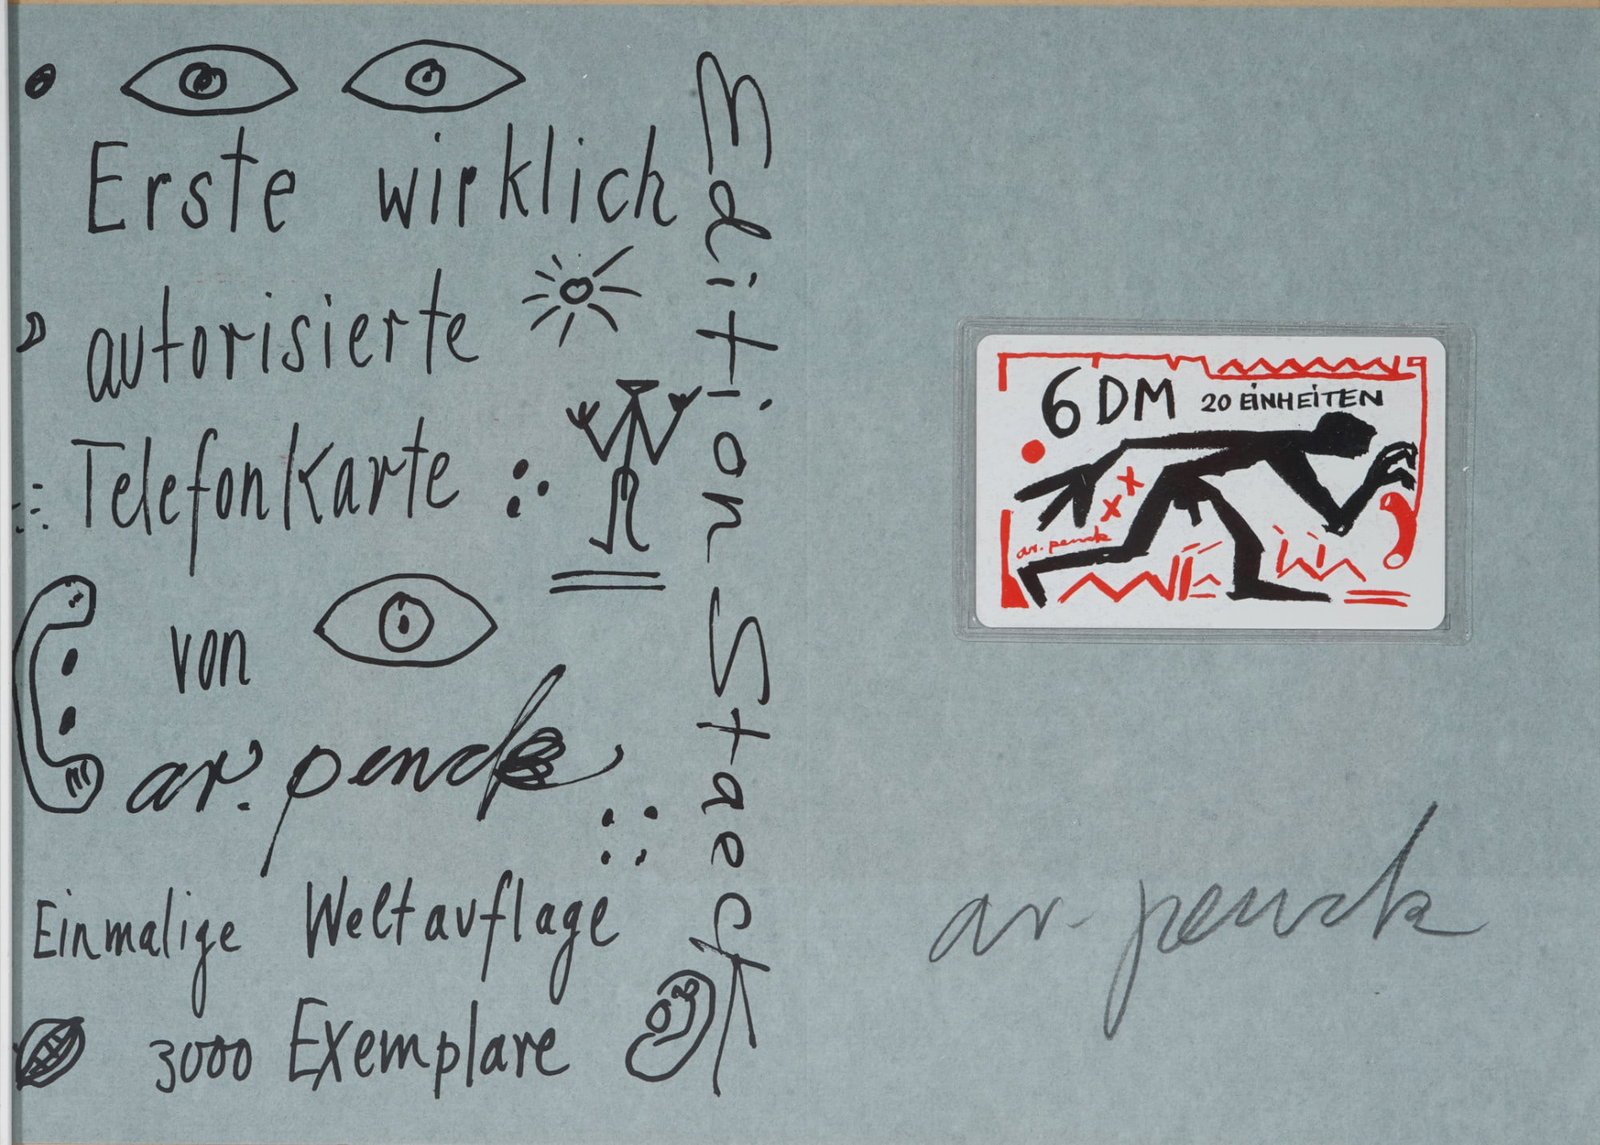 Erste wirklich
autorisierte
Telefonkarte
von
ar. penck
Einmalige Weltauflage
3000 Exemplare
Edition Staeck
6 DM 20 EINHEITEN
ar. penck
ar. penck